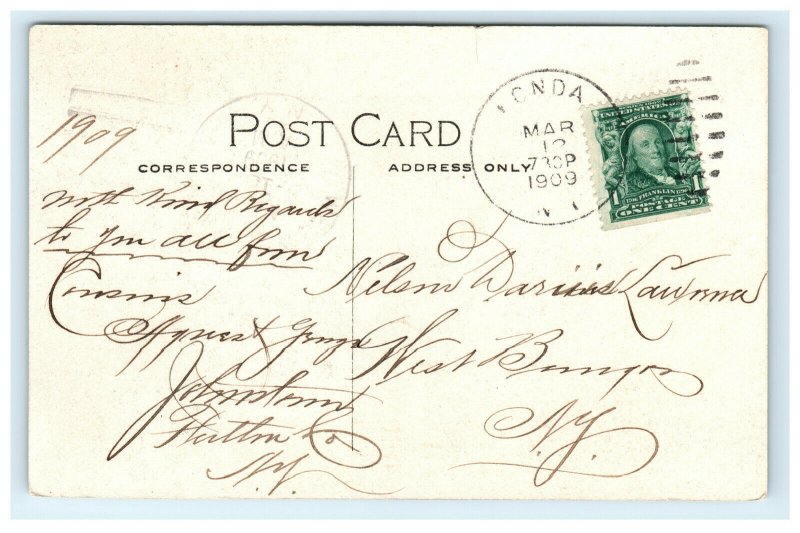 POST CARD
CORRESPONDENCE
ADDRESS ONLY
FONDA
MAR
12
730P
1909
N.Y.
UNITED STATES OF
AMERICA
FRANKLIN
1 POSTAGE 1
ONE CENT
1909
with Kind Regards
to you all from
Cousins
Agnes & George
Johnstown
Fulton Co
N.Y.
Nelson Darius Lawrence
West Bangor
N.Y.